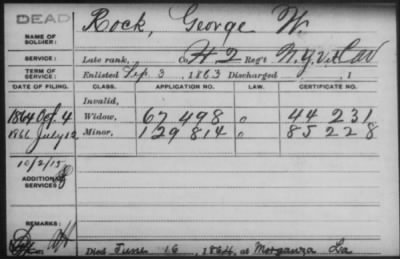 DEAD
NAME OF SOLDIER: Rock, George W.
SERVICE: Late rank, Co. H 2 Reg't N.Y.V. Cav
TERM OF SERVICE: Enlisted Sep. 3, 1863 Discharged , 1
DATE OF FILING. CLASS. APPLICATION NO. LAW. CERTIFICATE NO.
Invalid,
1864 Oct. 4 Widow, 67 498 44 231
1866 July 12 Minor, 129 814 85 228
10/2/15
ADDITIONAL SERVICES:
REMARKS:
Died June 16, 1864, at Morganza La